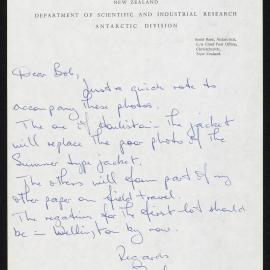 NEW ZEALAND
DEPARTMENT OF SCIENTIFIC AND INDUSTRIAL RESEARCH
ANTARCTIC DIVISION
Scott Base, Antarctica,
c/o Chief Post Office,
Christchurch,
New Zealand.
Dear Bob,
Just a quick note to
accompany these photos.
The one of the jacket
will replace the poor photo of the
Summer type jacket.
The others will form part of my
other paper on field travel.
The negatives for the first lot should
be in Wellington by now.
Regards